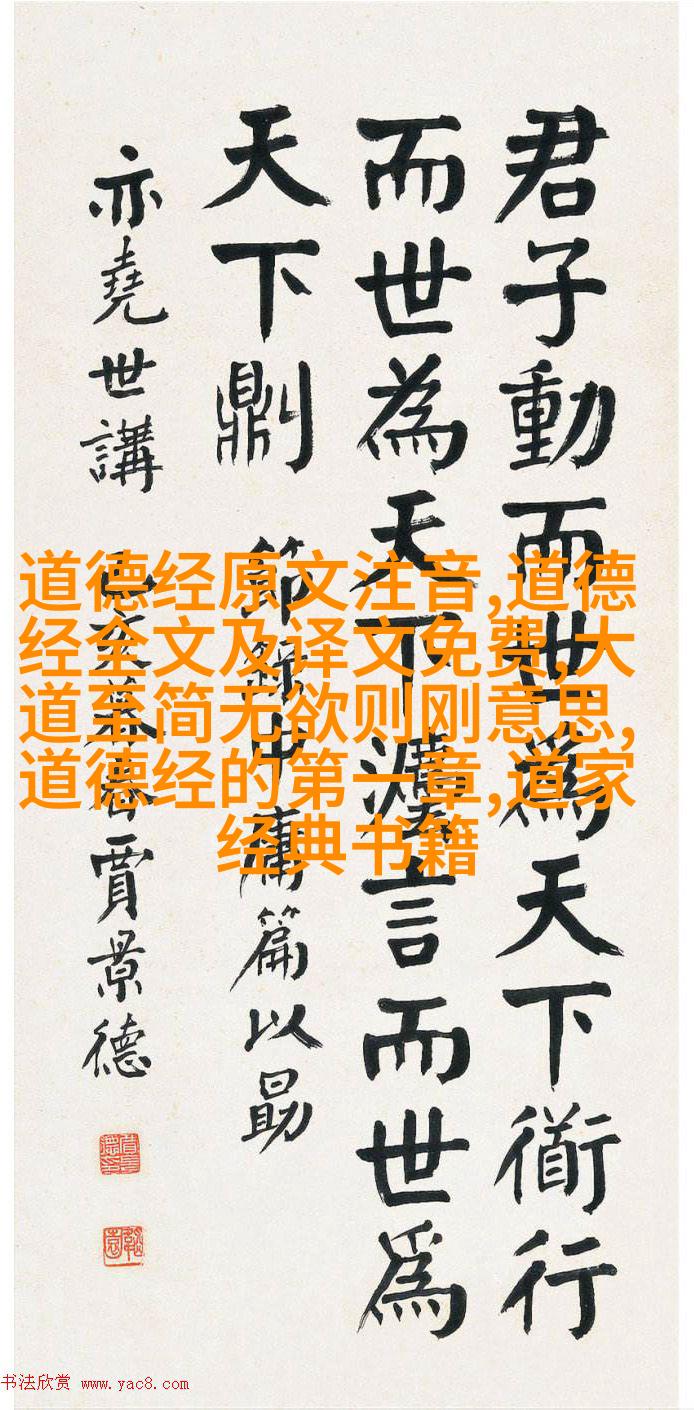 君子動而世爲天下衜行
而世為天下灋言而世爲
天下𠟭 節錄中庸篇以勗
亦堯世講 己亥暮春賈景德
道德经原文注音,道德
经全文及译文免费,大
道至简无欲则刚意思,
道德经的第一章,道家
经典书籍
书法欣赏 www.yac8.com